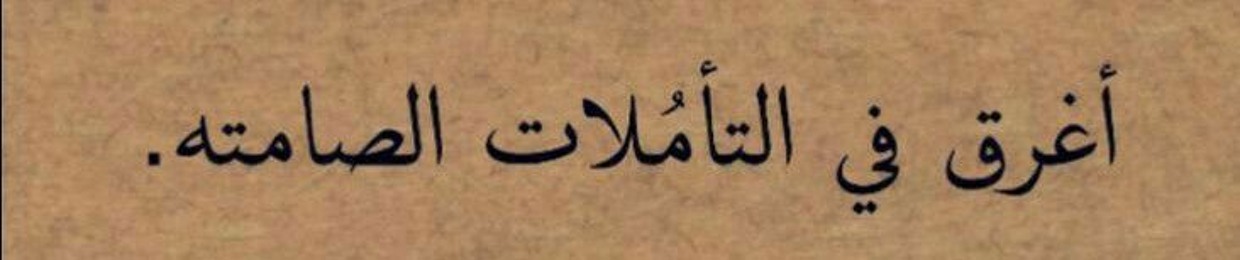 أغرق في التأمُلات الصامته.